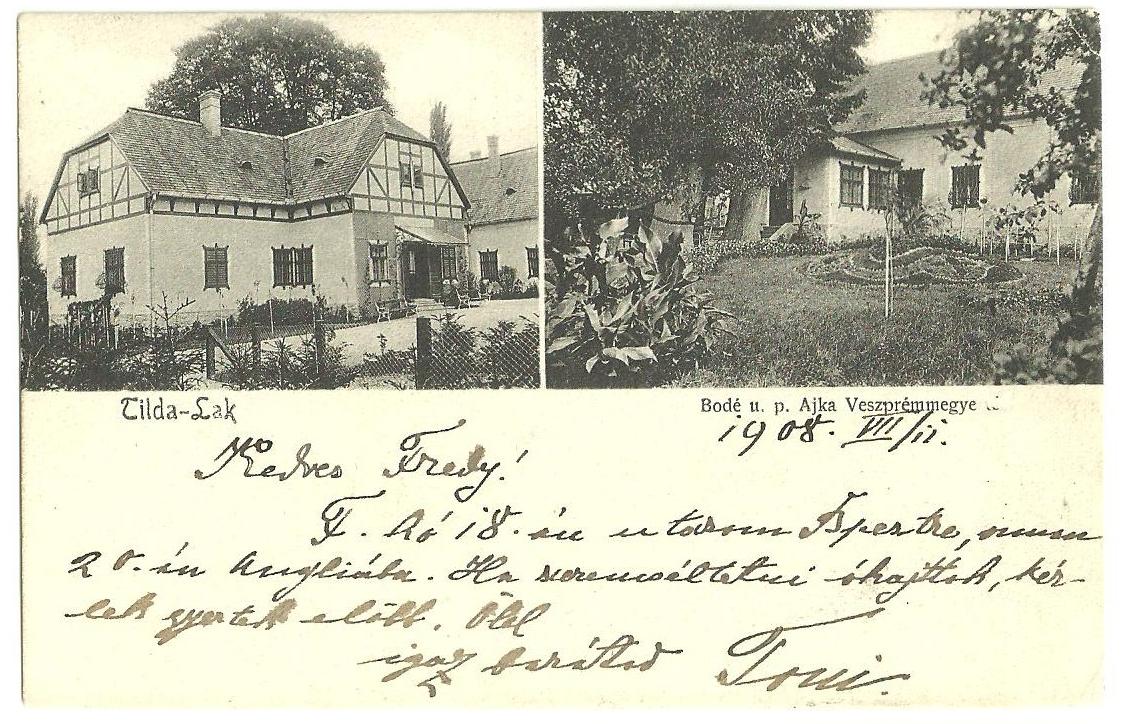 Tilda-Lak
Bodé u. p. Ajka Veszprémmegye
1908. VII/11.
Kedves Fredy!
F. hó 18.-án utazom Pestre, onnan
20.-án Angliába. Ha szerencséltetni óhajttok, kér-
lek gyertek előbb. Ölel
igaz barátod Toni.